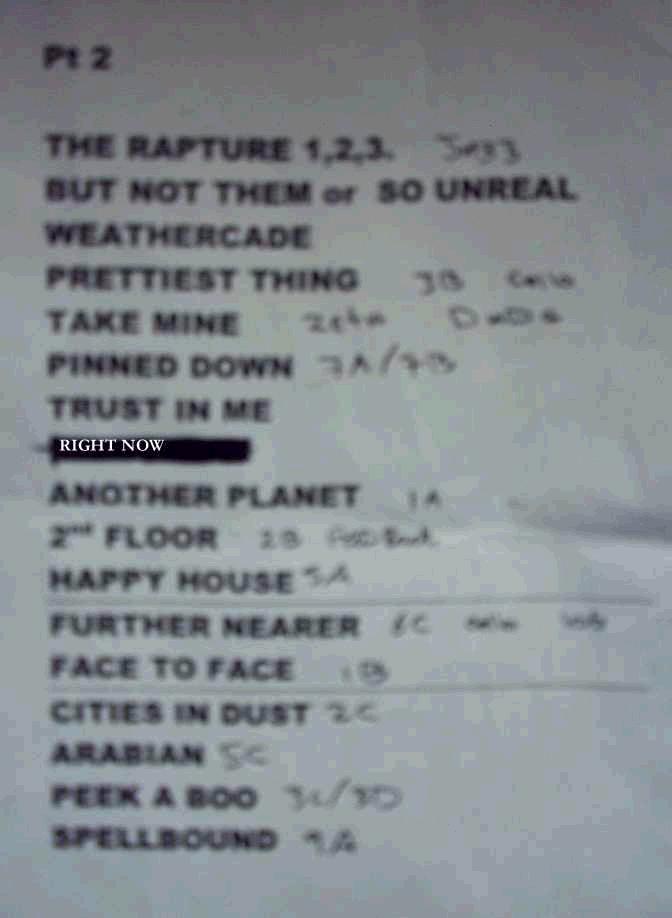 Pt 2
THE RAPTURE 1,2,3.
BUT NOT THEM or SO UNREAL
WEATHERCADE
PRETTIEST THING 3B Cello
TAKE MINE
PINNED DOWN 7A/7B
TRUST IN ME
RIGHT NOW
ANOTHER PLANET 1A
2nd FLOOR 2B
HAPPY HOUSE 5A
FURTHER NEARER 6C Cello
FACE TO FACE 1B
CITIES IN DUST 2C
ARABIAN 5C
PEEK A BOO 3C/3D
SPELLBOUND 9A